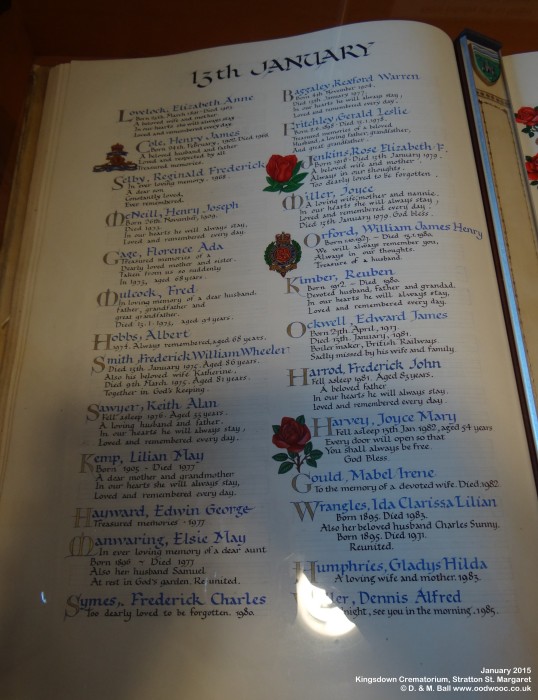 13th JANUARY
Lovelock, Elizabeth Anne
A beloved wife and mother.
In our hearts she will always stay
Loved and remembered every day
Cole, Henry James
A beloved husband and father
Loved and respected by all
Treasured memories.
Selby, Reginald Frederick
In ever loving memory. 1968.
A dear son
Constantly loved,
Ever remembered.
McNeill, Henry Joseph
Born 20th November, 1909.
Died 1973.
In our hearts he will always stay,
Loved and remembered every day.
Gage, Florence Ada
Treasured memories of a
Dearly loved mother and sister.
Taken from us so suddenly
In 1973, aged 68 years.
Mulcock, Fred.
In loving memory of a dear husband.
Father, grandfather and
great grandfather.
Died 13.1.1973, aged 94 years.
Hobbs, Albert
1974. Always remembered, aged 68 years.
Smith Frederick William Wheeler
Died 13th January 1975. Aged 86 years.
Also his beloved wife Katherine,
Died 9th March 1975. Aged 81 years.
Together in God's keeping
Sawyer, Keith Alan
Fell asleep 1976. Aged 33 years.
A loving husband and father.
In our hearts he will always stay,
Loved and remembered every day.
Kemp, Lilian May
Born 1905 - Died 1977
A dear mother and grandmother
In our hearts she will always stay,
Loved and remembered every day.
Hayward, Edwin George
Treasured memories - 1977
Manwaring, Elsie May
In ever loving memory of a dear aunt
Born 1896 - Died 1977
Also her husband Samuel
At rest in God's garden. Re-united.
Symes, Frederick Charles
Too dearly loved to be forgotten. 1980.
Baggaley, Rexford Warren
Born 4th November 1904.
Died 13th January 1977.
In our hearts he will always stay,
Loved and remembered every day.
Fritchley Gerald Leslie
Treasured memories of a beloved
Husband, a loving father, grandfather,
And great grandfather.
Jenkins Rose Elizabeth F.
Born 1918 - Died 13th January 1979
A beloved wife and mother
Always in our thoughts
Too dearly loved to be forgotten.
Miller, Joyce
A loving wife, mother and nannie.
In our hearts she will always stay,
Loved and remembered every day.
Died 13th January 1979. God bless.
Orford, William James Henry
We will always remember you,
Always in our thoughts.
Treasure of a husband.
Kimber, Reuben
Born 1912 - Died 1980.
Devoted husband, father and grandad.
In our hearts he will always stay,
Loved and remembered every day.
Ockwell, Edward James
Born 25th April, 1913.
Died 13th January, 1981.
Boiler maker, British Railways.
Sadly missed by his wife and family.
Harrod, Frederick John
Fell asleep 1981. Aged 83 years.
A beloved father
In our hearts he will always stay.
Loved and remembered every day.
Harvey, Joyce Mary
Fell asleep 13th Jan 1982, aged 54 years
Every door will open so that
You shall always be free.
God Bless.
Gould, Mabel Irene
To the memory of a devoted wife. Died 1982
Wrangles, Ida Clarissa Lilian
Born 1895. Died 1983.
Also her beloved husband Charles Sunny.
Born 1895. Died 1971.
Reunited.
Humphries, Gladys Hilda
A loving wife and mother. 1983.
Dennis Alfred
see you in the morning'. 1985.
January 2015
Kingsdown Crematorium, Stratton St. Margaret
© D. & M. Ball www.oodwooc.co.uk